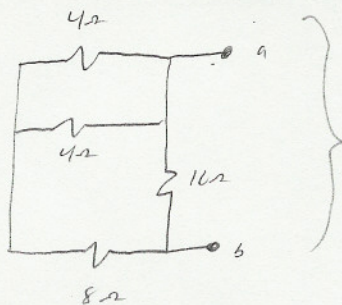 4Ω
a
4Ω
16Ω
b
8Ω